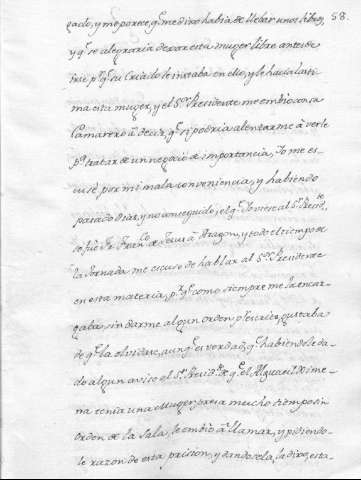 gado, y me parece, q̃ me dixo habia de llebar unos libros, 58.
y q̃ se alegraria dexar esta muger libre antes de
irse p.r q̃ su Criado le instaba en ello, y le hacia lasti-
ma esta muger, y el S.or Presidente me embio con su
Camarero à decir, q̃ si podria alentarme à verle
p.a tratar de un negocio de importancia, Yo me es-
cusè por mi mala conveniencia, y habiendo
pasado dias, y no conseguido, el q̃ Yo viese al S.or Presid.te
se fue D.n Fran.co à Aragon, y todo el tiempo de
la Jornada me escuso de hablar al S.or Presidente
en esta materia, p.r q̃ como siempre me la encar-
gaba sin darme algun orden p.r escrito, gustaba
de q̃ la olvidase, aunq̃ es verdad, q̃ habiendole da-
do algun aviso el S.or Presid.te de q̃ el Alguacil Xime-
na tenia una Muger presa mucho tiempo sin
orden de la Sala, le embiò à llamar, y pidiendo-
le razon de esta prision, y dandosela, la dixo, esta